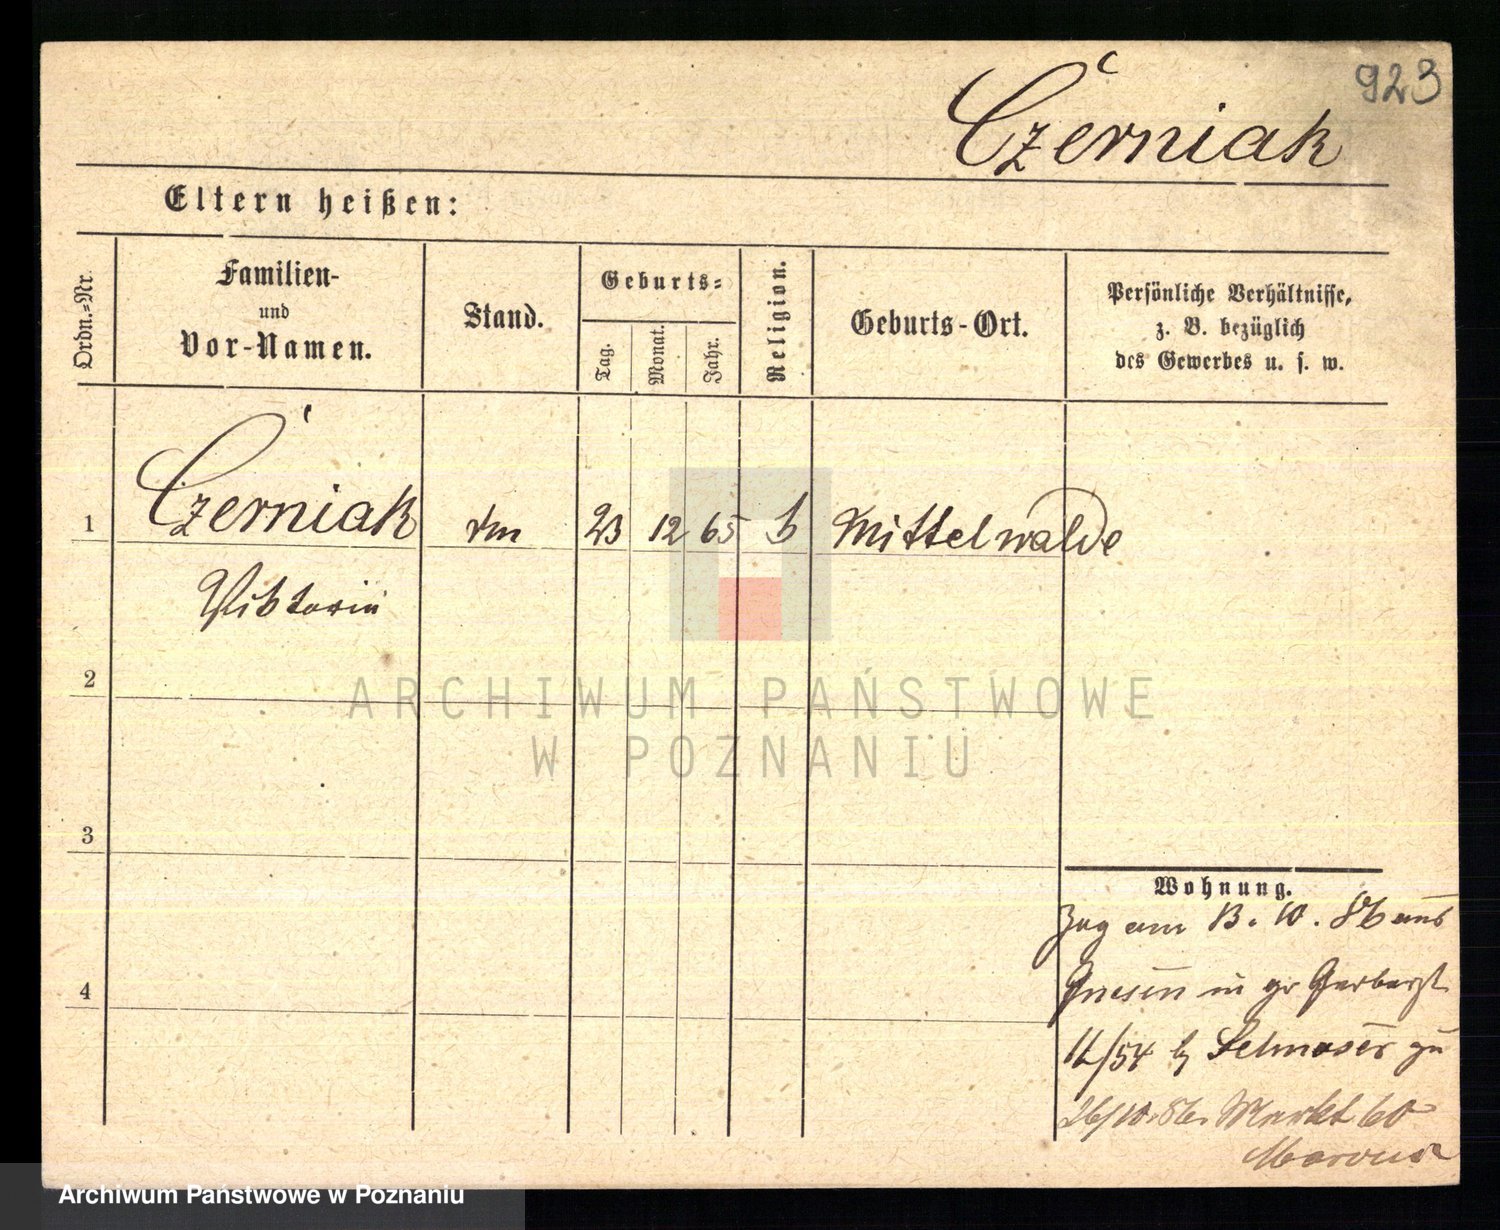 923
Czerniak
Eltern heißen:
Ordn.-Nr.
Familien-
und
Vor-Namen.
Stand.
Geburts-
Tag.
Monat.
Jahr.
Religion.
Geburts-Ort.
Persönliche Verhältnisse,
z. B. bezüglich
des Gewerbes u. s. w.
1 Czerniak 23 12 65 Mittelwalde
Viktoria
2
ARCHIWUM PAŃSTWOWE
W POZNANIU
3
Wohnung.
Zog am 13. 10. 86 aus
4
Gnesen in gr Gerberst
11/54 b zu
26/10. 86. Markt 60
Archiwum Państwowe w Poznaniu